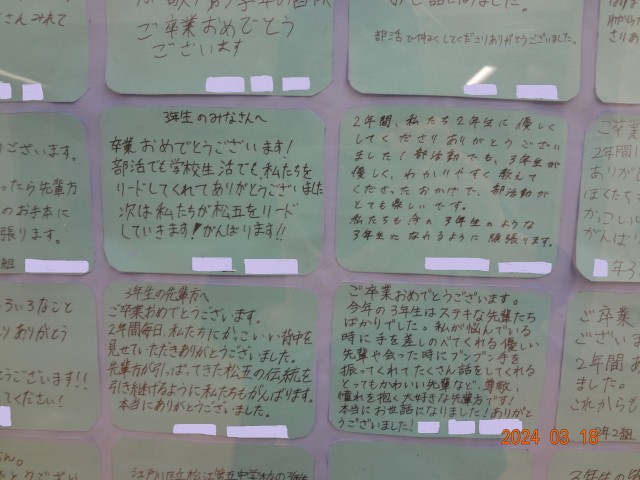 ご卒業おめでとう
ございます
部活で仲よくしてくださりありがとうございました。
3年生のみなさんへ
卒業おめでとうございます!
部活でも学校生活でも、私たちを
リードしてくれてありがとうございました
次は私たちが松五をリード
していきます!がんばります!!
2年間、私たち2年生に優しく
してくださりありがとうござい
ました!部活動でも、3年生が
優しく、わかりやすく教えて
くださったおかげで、部活動が
とても楽しいです。
私たちも今の3年生のような
3年生になれるように頑張ります。
ございます。
ったら先輩方
のお手本に
張ります。
組
3年生の先輩方へ
ご卒業おめでとうございます。
2年間毎日、私たちにかっこいい背中を
見せていただきありがとうございました。
先輩方が引っぱってきた松五の伝統を
引き継げるように私たちもがんばります。
本当にありがとうございました。
ご卒業おめでとうございます。
今年の3年生はステキな先輩たち
ばかりでした。私が悩んでいる
時に手を差しのべてくれる優しい
先輩や会った時にブンブン手を
振ってくれてたくさん話をしてくれる
とってもかわいい先輩など、尊敬、
憧れを抱く大好きな先輩方です!
本当にお世話になりました!ありがと
うございました!
いろいろなこと
りありがとう
とうございます!!
てください!
ご卒業
ございま
2年間
ました。
これからも
2年2組
2024 03 18